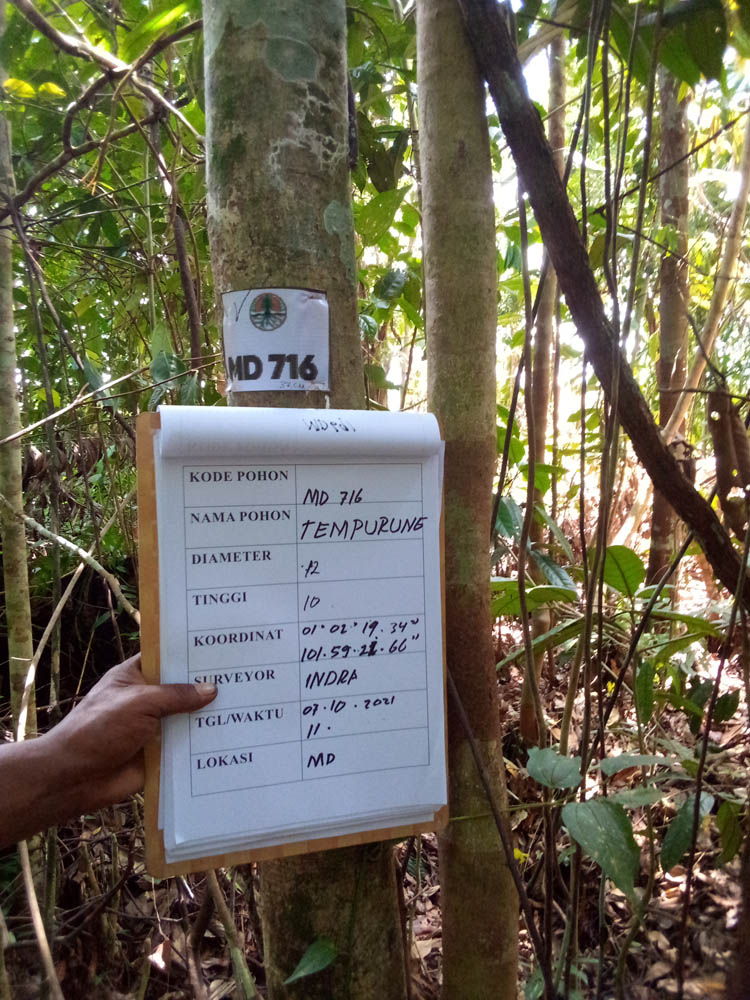 MD 716
KODE POHON MD 716
NAMA POHON TEMPURUNG
DIAMETER 12
TINGGI 10
KOORDINAT 01° 02' 19.34"
101.59.21.66"
SURVEYOR INDRA
TGL/WAKTU 07.10.2021
11.
LOKASI MD